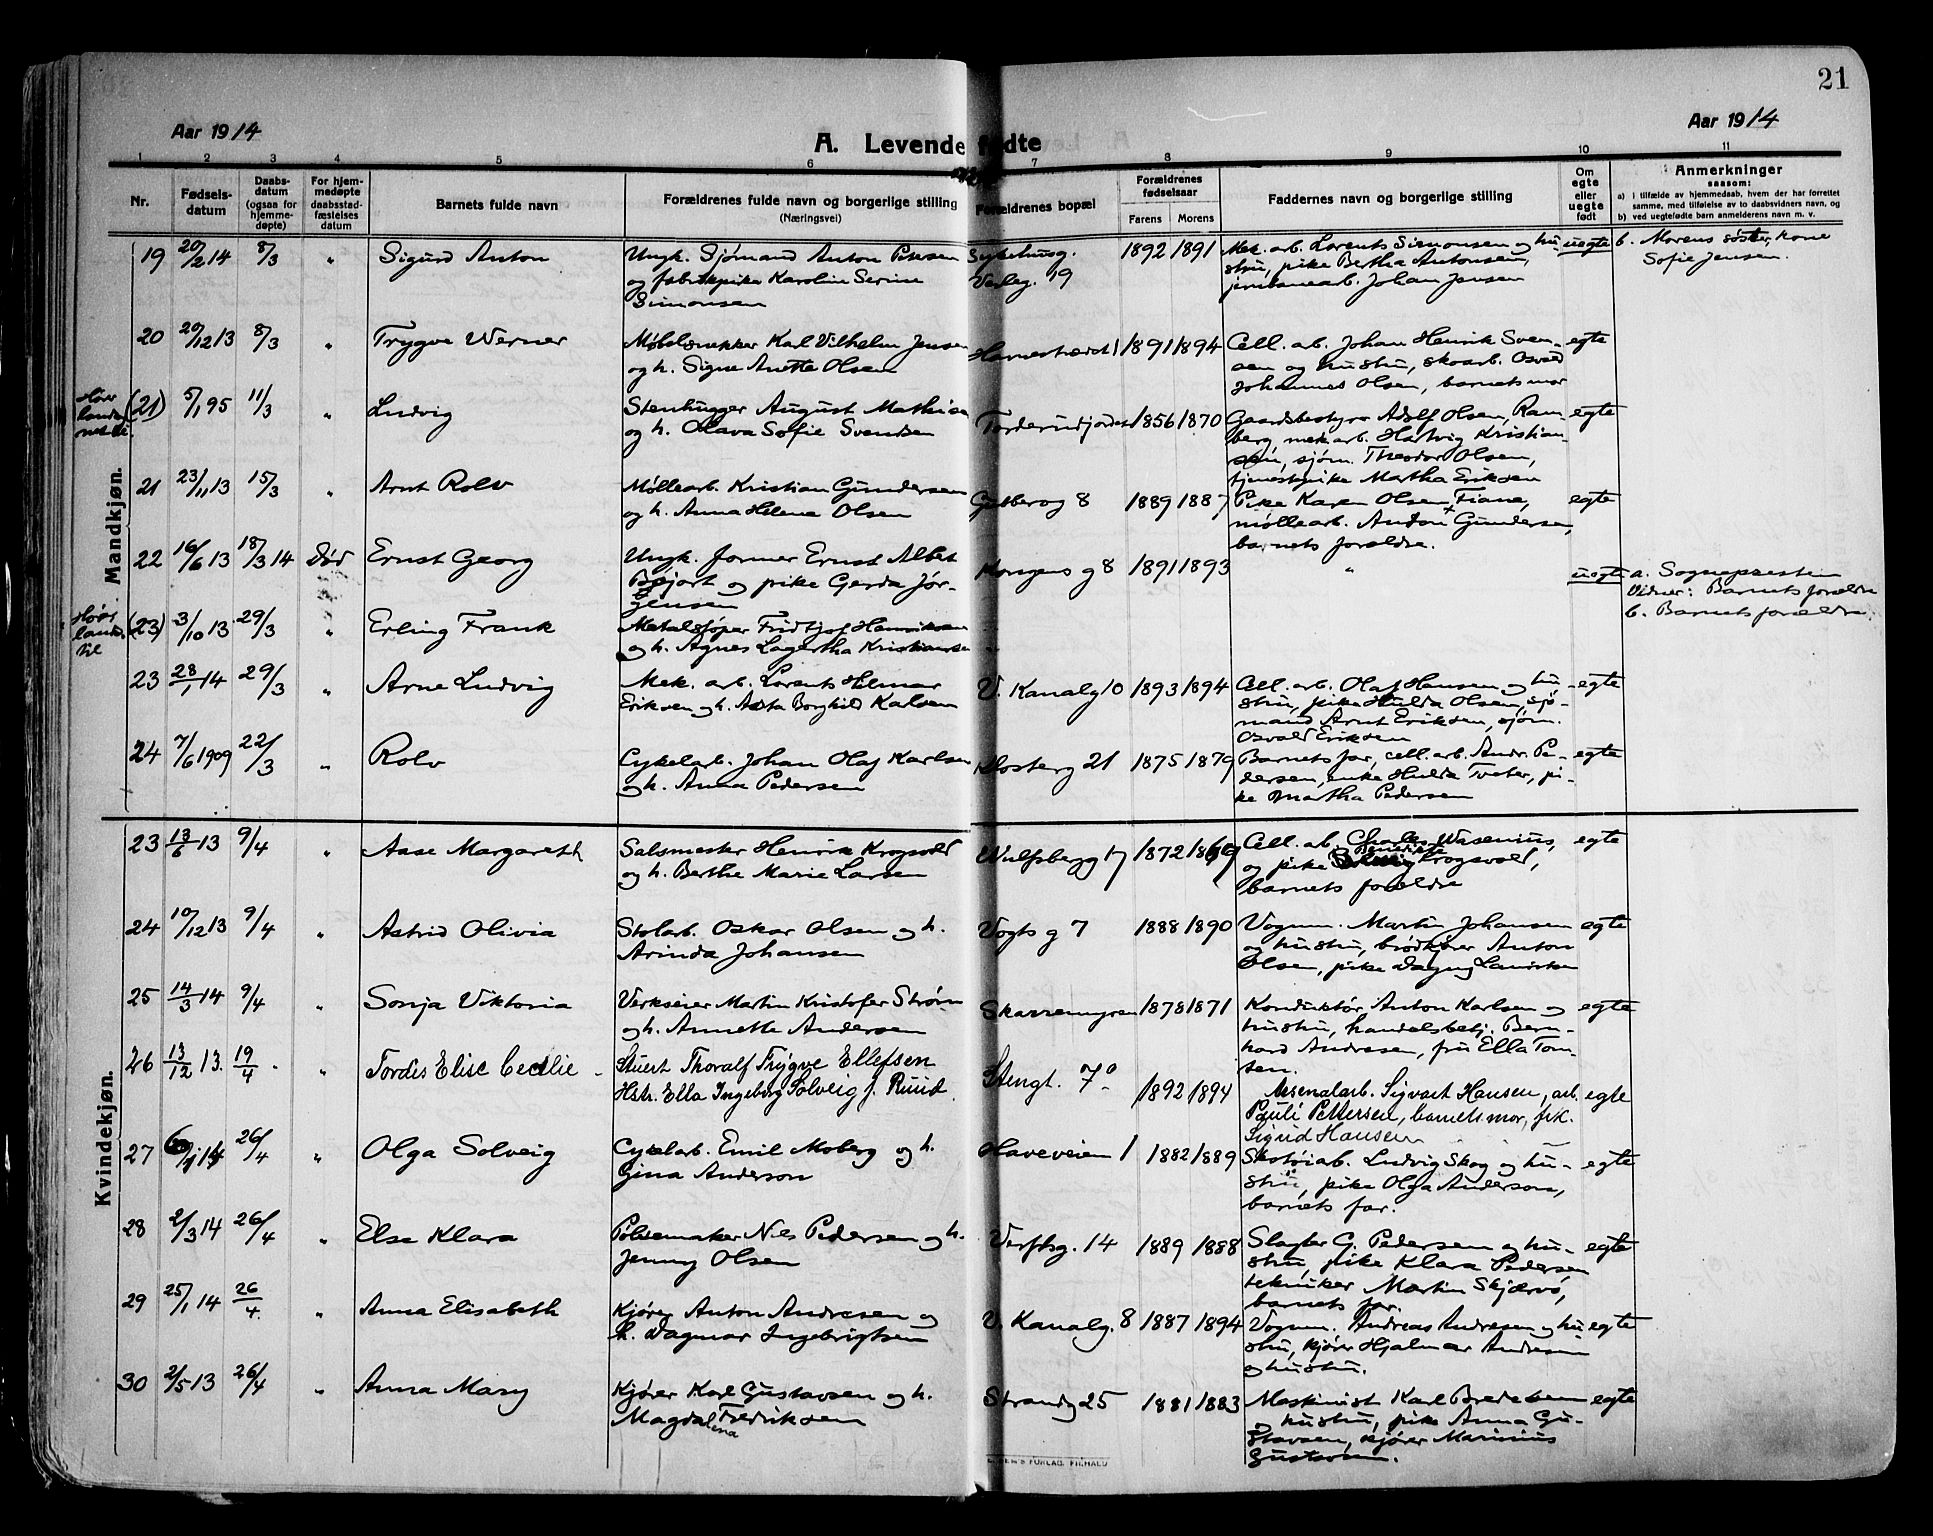 21
Aar 1914
A. Levendefødte
Aar 1914
1 2 3 4 5 6 7 8 9 10 11
Nr.
Fødsels-
datum
Daabs-
datum
(ogsaa for
hjemme-
døpte)
For hjem-
medøpte
daabsstad-
fæstelses
datum
Barnets fulde navn
Forældrenes fulde navn og borgerlige stilling
(Næringsvei)
Forældrenes bopæl
Forældrenes
fødselsaar
Farens Morens
Faddernes navn og borgerlige stilling
Om
egte
eller
uegte
født
Anmerkninger
saasom:
a) i tilfælde av hjemmedaab, hvem der har forrettet
samme, med tilføielse av to daabsvidners navn, og
b) ved uegtefødte barn anmelderens navn m. v.
Mandkjøn.
19 20/2 14 8/3 Sigurd Anton
Ungk. Sjømand Anton Petersen
og fabrikpike Karoline Serine
Simonsen
Sykehusg.
Verleg. 19
1892 1891
Mek. arb. Lorents Simonsen og hu-
stru, pike Bertha Antonsen,
jernbanearb. Johan Jensen
uegte
b. Morens søster, kone
Sofie Jensen.
20 20/12 13 8/3 " Trygve Werner
Møbelsnekker Karl Vilhelm Jensen
og h. Signe Anette Olsen
1891 1894
Cell. arb. Johan Henrik Sven-
sen og hustru, skoarb. Osvald
Johannes Olsen, barnets mor
egte
(21) 5/1 95 11/3 " Ludvig
Stenhugger August Mathisen
og h. Olava Sofie Svendsen
Torderudjordet
1856 1870
Gaardsbestyrer Adolf Olsen, Ram-
berg, mek. arb. Hartvig Kristian-
sen, sjøm. Theodor Olsen,
tjenestepike Martha Eriksen
egte
21 23/11 13 15/3 " Arnt Rolv
Møllearb. Kristian Gundersen
og h. Anna Helene Olsen
Gutberog 8
1889 1887
Pike Karen Olsen Fiane,
møllearb. Anton Gundersen,
barnets forældre.
egte
22 16/6 13 18/3 14 Død Ernst Georg
Ungk. former Ernst Albet
Bøjort og pike Gerda Jør-
gensen
Kongens g 8
1891 1893
"
uegte
a. Sognepresten
Vidner: Barnets forældre
b. Barnets forældre.
(23) 3/10 13 29/3 " Erling Frank
Metalstøper Fridtjof Henriksen
og h. Agnes Lagertha Kristiansen
23 28/1 14 29/3 " Arne Ludvig
Mek. arb. Lorents Hilmar
Eriksen og h. Asta Borghild Karlsen
V. Kanalg 10
1893 1894
Cell. arb. Olaf Hansen og hu-
stru, pike Hulda Olsen, sjø-
mand Arnt Eriksen, sjøm.
Osvald Eriksen
egte
24 7/6 1909 22/3 " Rolv
Cykelarb. Johan Olaf Karlsen
og h. Anna Pedersen
Klosterg 21
1875 1879
Barnets far, cell. arb. Andr. Pe-
dersen, enke Hulda Tveter, pi-
ke Martha Pedersen
egte
Kvindekjøn.
23 13/6 13 9/4 " Aase Margareth
Salsmester Henrik Krogsvold
og h. Berthe Marie Larsen
Wulfsbergg 17
1872 1869
Cell. arb. Charles Wasenius,
og pike Krogsvold,
barnets forældre
egte
24 10/12 13 9/4 " Astrid Olivia
Stolarb. Oskar Olsen og h.
Arinda Johansen
Vogts g 7
1888 1890
Vognm. Martin Johansen
og hustru, brødkjører Anton
Olsen, pike Dagny Lauritsen
egte
25 14/3 14 9/4 " Sonja Viktoria
Verkseier Martin Kristofer Strøm
og h. Annette Andersen
Skarremyren
1878 1871
Konduktør Anton Karlsen og
hustru, handelsbetj. Bern-
hard Andresen, fru Ella Tom-
sen.
egte
26 13/12 13. 19/4 " Tordis Elise Cecilie
Stuert Thoralf Trygve Ellefsen
Hstr. Ella Ingeborg Solveig f. Ruud.
Stengt. 7
1892 1894
Arsenalarb. Sigvart Hansen, arb.
Pauli Pettersen, barnets mor, frk.
Sigrid Hansen
egte
27 6/1 14 26/4 " Olga Solveig
Cykelarb. Emil Moberg og h.
Gina Anderson
Haveveien 1
1882 1889
Skotøiarb. Ludvig Skog og hu-
stru, pike Olga Anderson,
barnets far.
egte
28 2/3 14 26/4 " Else Klara
Pølsemaker Nils Pedersen og h.
Jenny Olsen
Verftsg. 14
1889 1888
Slagter G. Pedersen og hu-
stru, pike Klara Pedersen
tekniker Martin Skjærvø,
barnets far.
egte
29 25/1 14 26/4. " Anna Elisabeth
Kjører Anton Andresen og
h. Dagmar Ingebrigtsen
V. Kanalg. 8
1887 1894
Vognm. Andreas Andresen og hu
stru, kjører Hjalmar Andresen
og hustru.
egte
30 2/5 13 26/4 " Anna Mary
Kjører Karl Gustavsen og h.
Magdalena Fredriksen
Strandg 25
1881 1883
Maskinist Karl Bredesen
og hustru, pike Anna Gu-
stavsen, kjører Marinius
Gustavsen.
egte